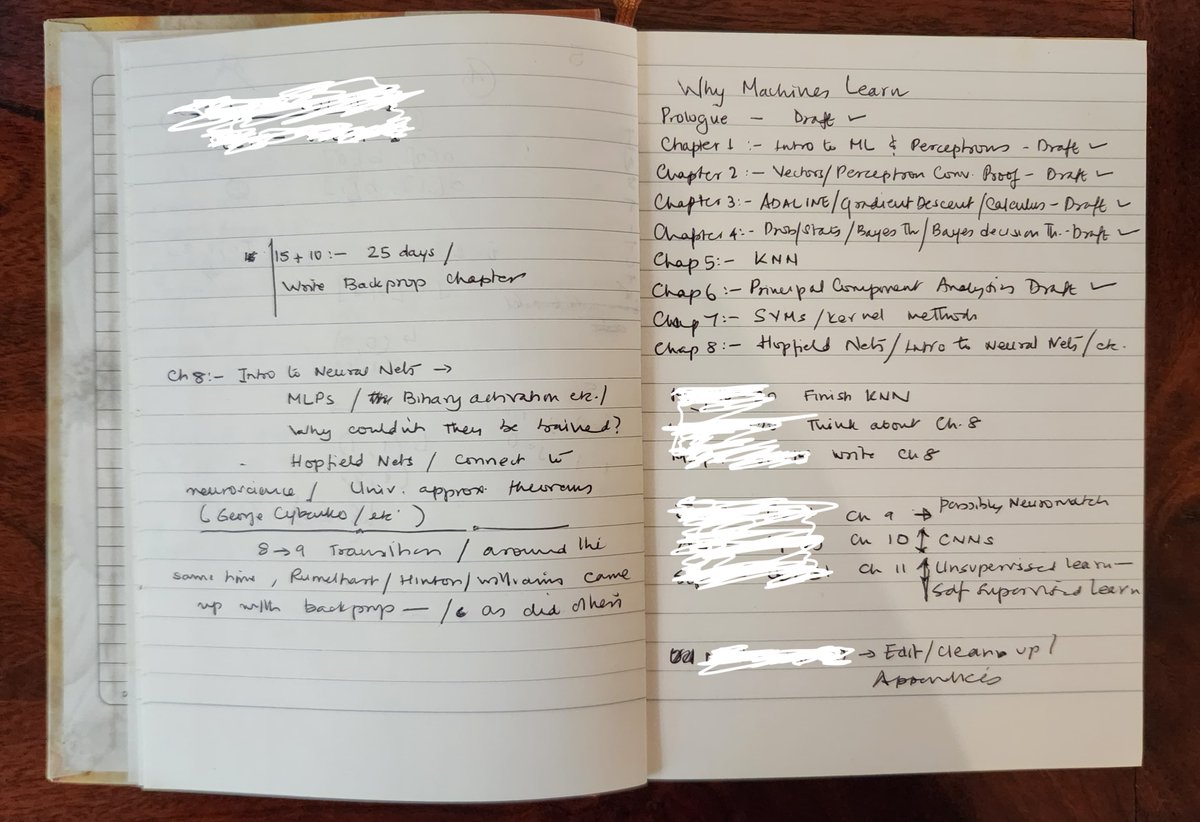 15 + 10 :- 25 days /
Write Backprop Chapter
Ch 8 :- Intro to Neural Nets →
MLPs / Binary activation etc. /
Why couldn't they be trained?
Hopfield Nets / Connect w
neuroscience / Univ. approx. theorems
(George Cybenko / etc.)
8 → 9 Transition / around the
same time, Rumelhart / Hinton / Williams came
up with backprop — / as did others
Why Machines Learn
Prologue - Draft ✓
Chapter 1 :- Intro to ML & Perceptrons - Draft ✓
Chapter 2 :- Vectors / Perceptron Conv. Proof - Draft ✓
Chapter 3 :- ADALINE / Gradient Descent / Calculus - Draft ✓
Chapter 4 :- Prob / Stats / Bayes Th / Bayes decision Th. - Draft ✓
Chap 5 :- KNN
Chap 6 :- Principal Component Analysis Draft ✓
Chap 7 :- SVMs / Kernel methods
Chap 8 :- Hopfield Nets / Intro to Neural Nets / etc.
Finish KNN
Think about Ch. 8
Write Ch 8
Ch 9 → Possibly Neuromatch
Ch 10 CNNs
Ch 11 Unsupervised Learn—
Self Supervised Learn
→ Edit / Clean up /
Appendices